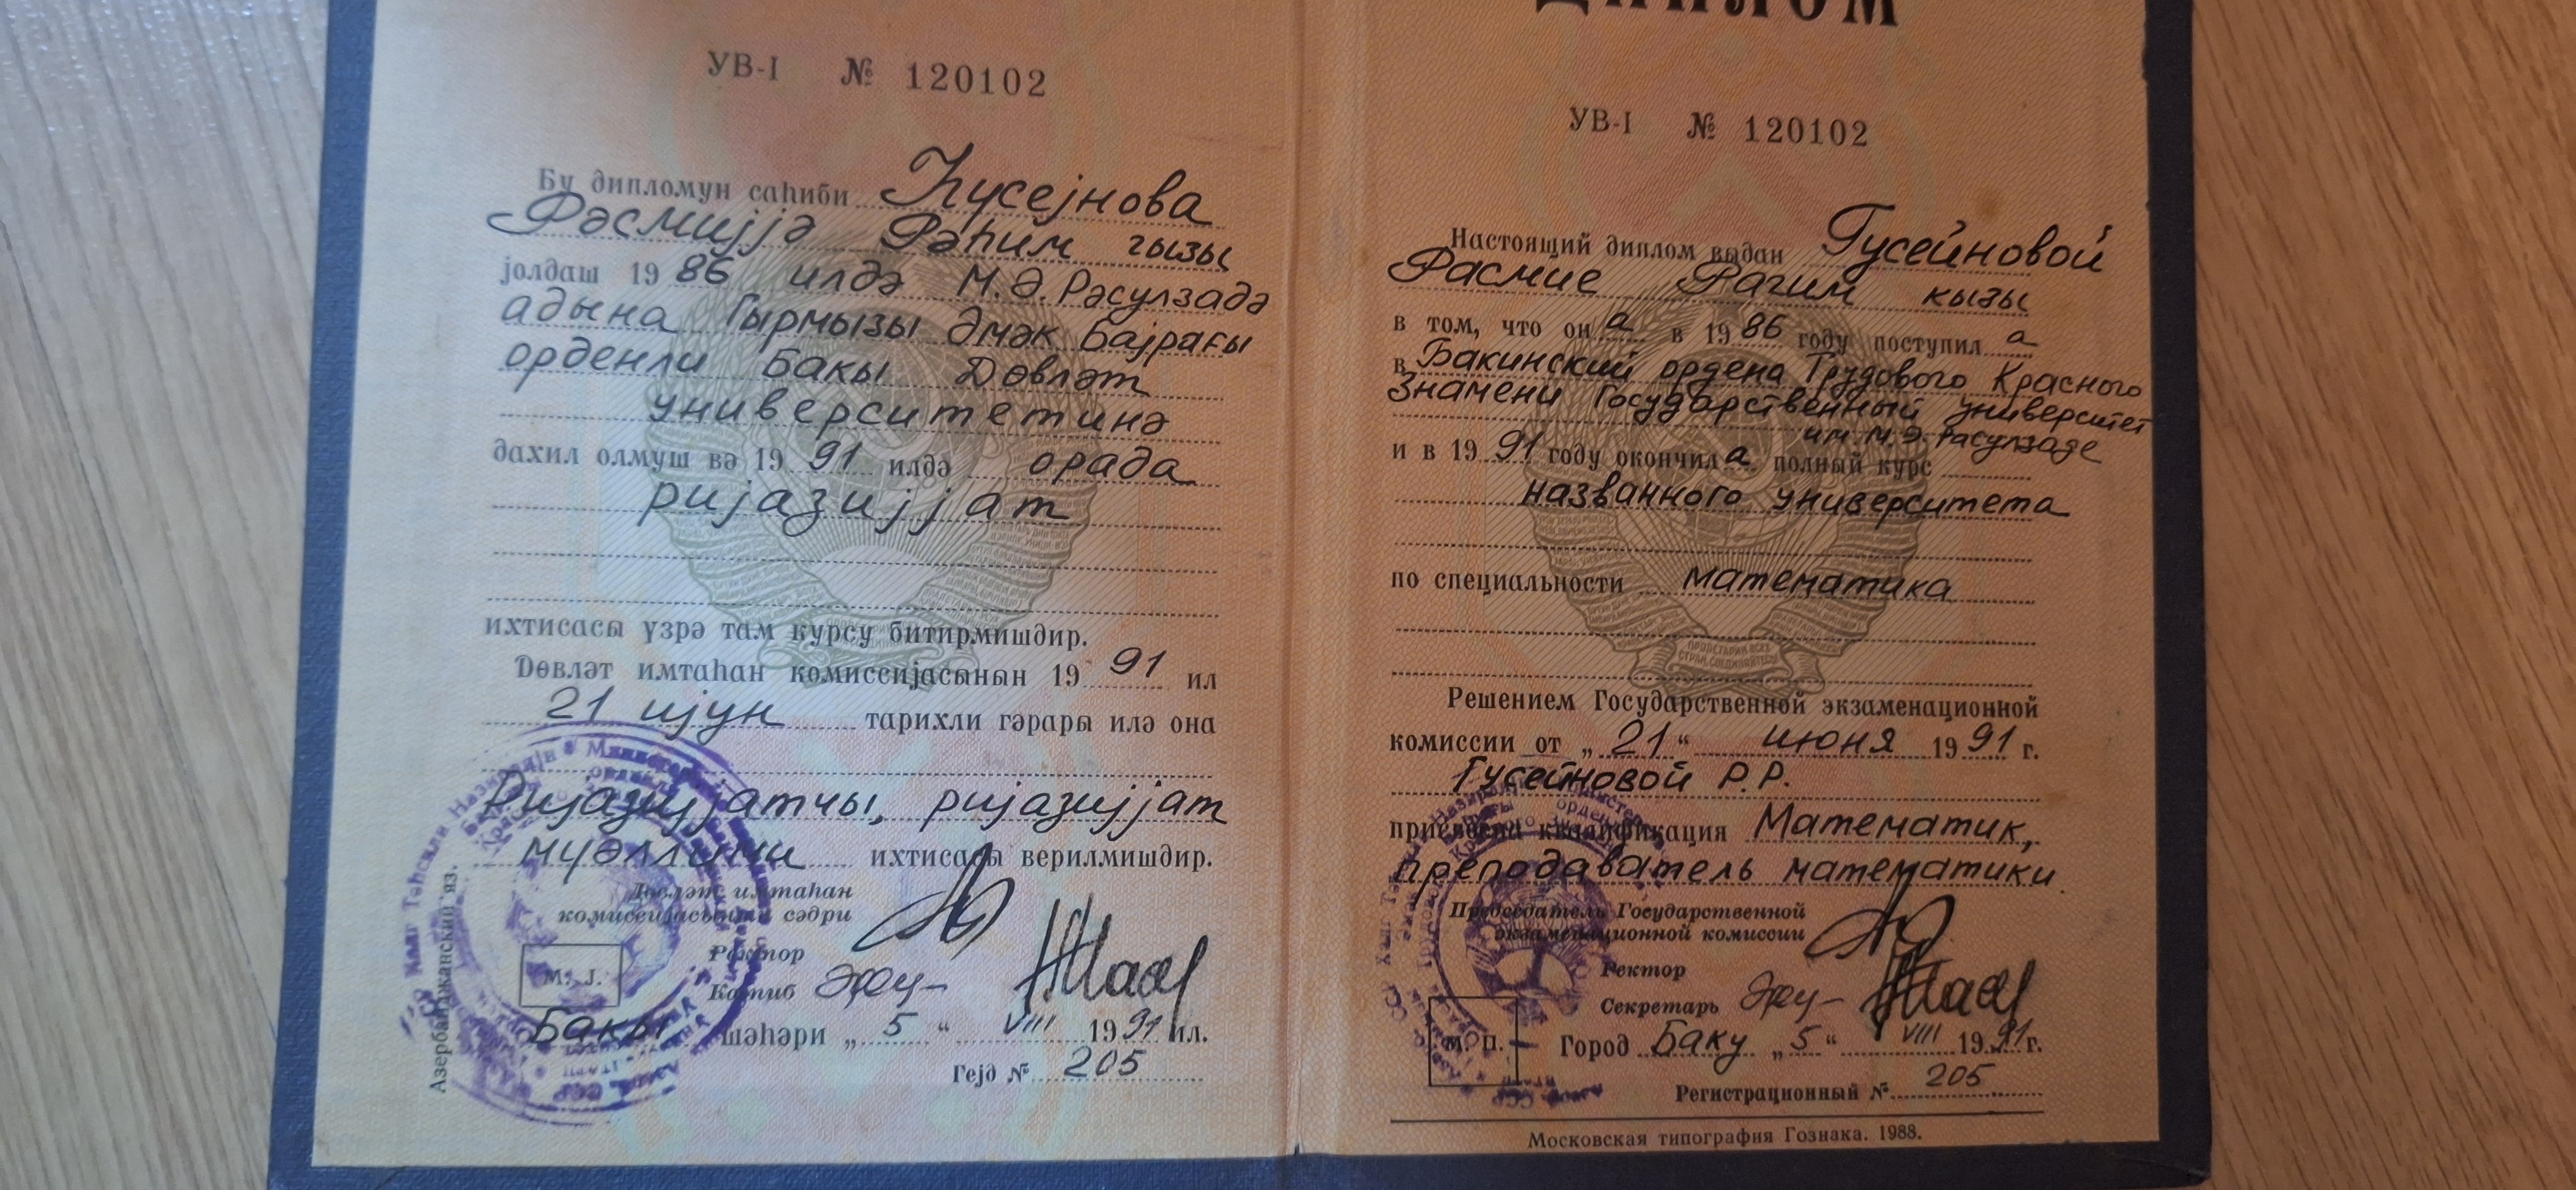 УВ-I № 120102
Бу дипломун саһиби Һусејнова
Рәсмијјә Рәһим гызы
јолдаш 1986 илдә М.Ә.Рәсулзадә
адына Гырмызы Әмәк Бајрағы
орденли Бакы Дөвләт
университетинә
дахил олмуш вә 1991 илдә орада
ријазијјат
ихтисасы үзрә там курсу битирмишдир.
Дөвләт имтаһан комиссијасынын 1991 ил
21 ијун тарихли гәрары илә она
Ријазијјатчы, ријазијјат
мүәллими ихтисасы верилмишдир.
Дөвләт имтаһан
комиссијасынын сәдри
Ректор
Катиб
М. Ј.
Бакы шәһәри „ 5 “ VIII 1991 ил.
Гејд № 205
Азербайджанский яз.
ДИПЛОМ
УВ-I № 120102
Настоящий диплом выдан Гусейновой
Расмие Рагим кызы
в том, что он а в 1986 году поступил а
в Бакинский ордена Трудового Красного
Знамени Государственный университет
им. М.Э. Расулзаде
и в 1991 году окончил а полный курс
названного университета
по специальности математика
Решением Государственной экзаменационной
комиссии от „ 21 “ июня 1991 г.
Гусейновой Р.Р.
присвоена квалификация Математик,
преподаватель математики
Председатель Государственной
экзаменационной комиссии
Ректор
Секретарь
М. П.
Город Баку „ 5 “ VIII 1991 г.
Регистрационный № 205
Московская типография Гознака. 1988.